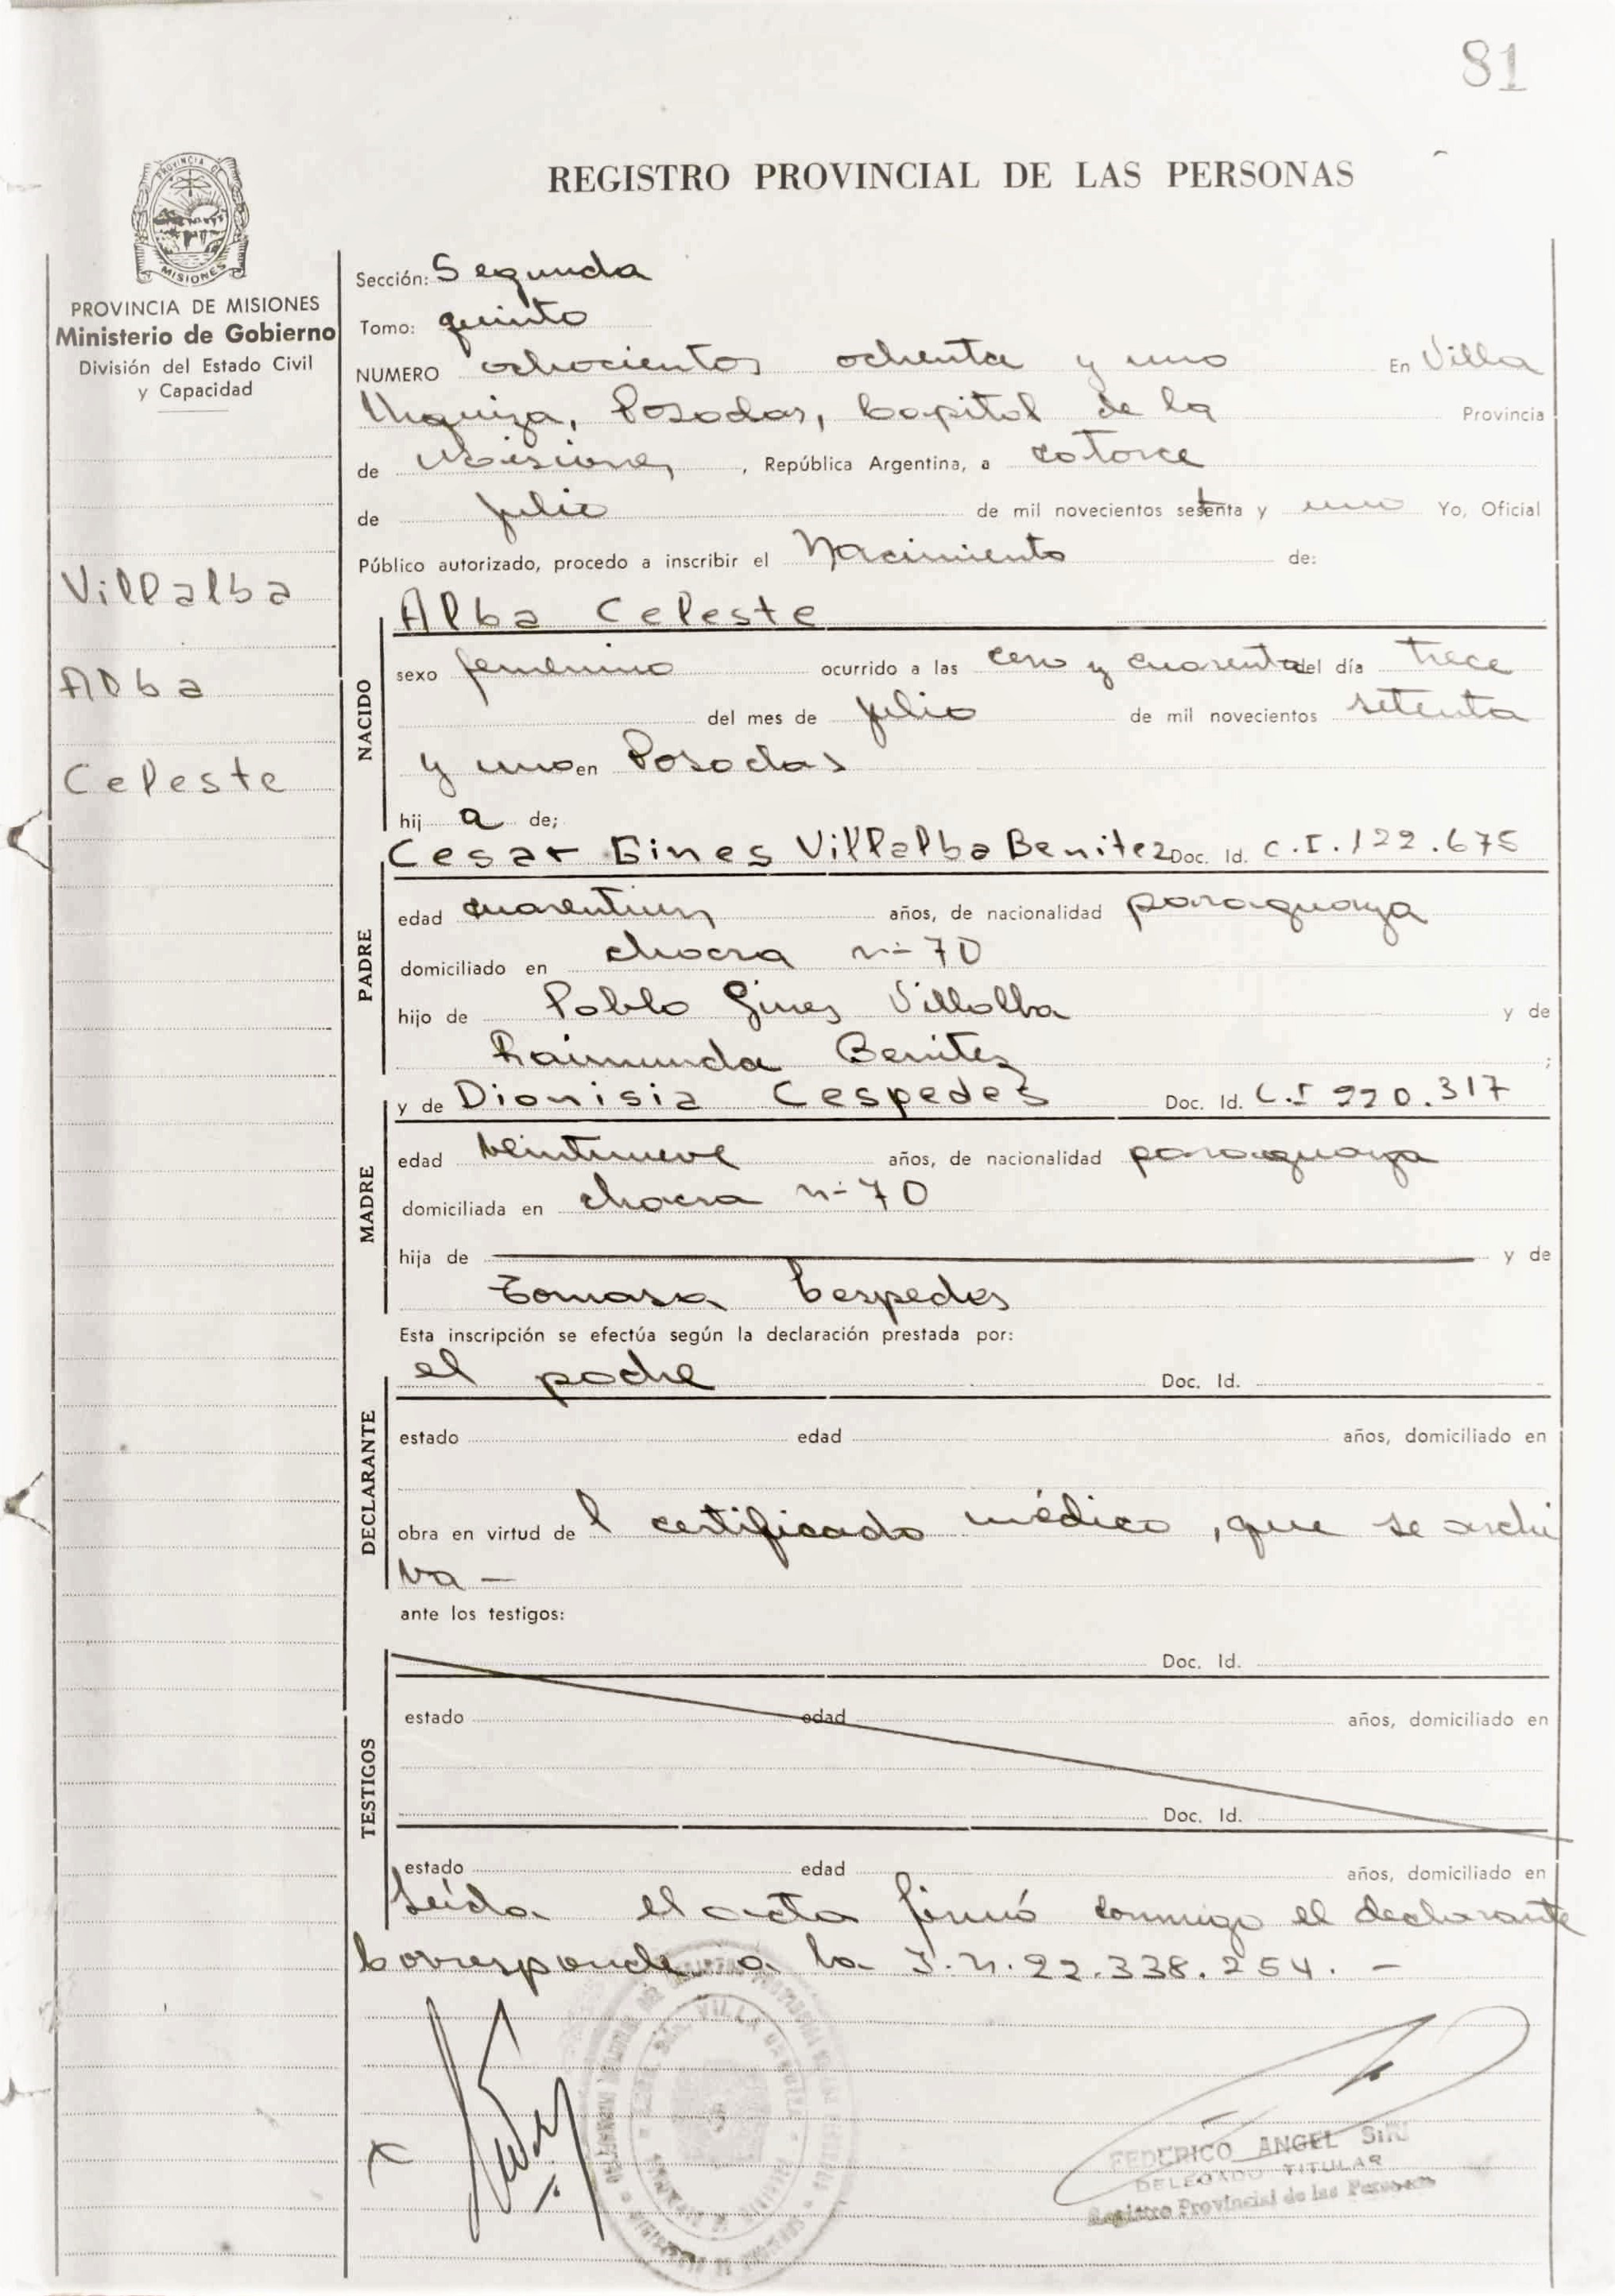 81
REGISTRO PROVINCIAL DE LAS PERSONAS
PROVINCIA DE
MISIONES
PROVINCIA DE MISIONES
Ministerio de Gobierno
División del Estado Civil
y Capacidad
Villalba
Alba
Celeste
Sección: Segunda
Tomo: quinto
NUMERO ochocientos ochenta y uno En Villa
Urquiza, Posadas, Capital de la Provincia
de Misiones, República Argentina, a catorce
de julio de mil novecientos setenta y uno Yo, Oficial
Público autorizado, procedo a inscribir el Nacimiento de:
NACIDO
Alba Celeste
sexo femenino ocurrido a las cero y cuarenta del día trece
del mes de julio de mil novecientos setenta
y uno en Posadas
hij a de;
PADRE
Cesar Gines Villalba Benitez Doc. Id. C.I. 122.675
edad cuarentiun años, de nacionalidad paraguaya
domiciliado en chacra nº 70
hijo de Pablo Gines Villalba y de
Raimunda Benitez ;
MADRE
y de Dionisia Cespedes Doc. Id. C.I 220.317
edad veintinueve años, de nacionalidad paraguaya
domiciliada en chacra nº 70
hija de y de
Tomasa Cespedes
Esta inscripción se efectúa según la declaración prestada por:
DECLARANTE
el padre Doc. Id.
estado edad años, domiciliado en
obra en virtud de l certificado médico, que se archi
va -
ante los testigos:
TESTIGOS
Doc. Id.
estado edad años, domiciliado en
Doc. Id.
estado edad años, domiciliado en
Leída el acta firmó conmigo el declarante
Corresponde a la I.N. 22.338.254. -
FEDERICO ANGEL
DELEGADO TITULAR
Registro Provincial de las Personas